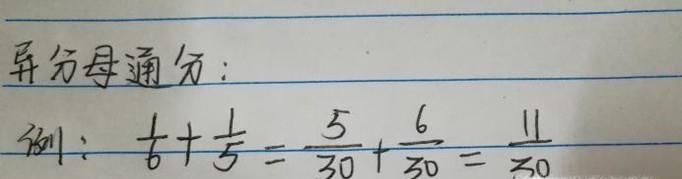 异分母通分:
例: 1/6 + 1/5 = 5/30 + 6/30 = 11/30